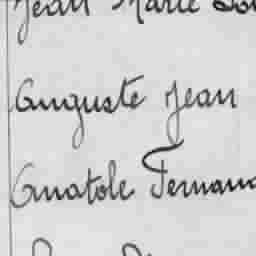 Jean Marie
Auguste Jean
Anatole Fernand